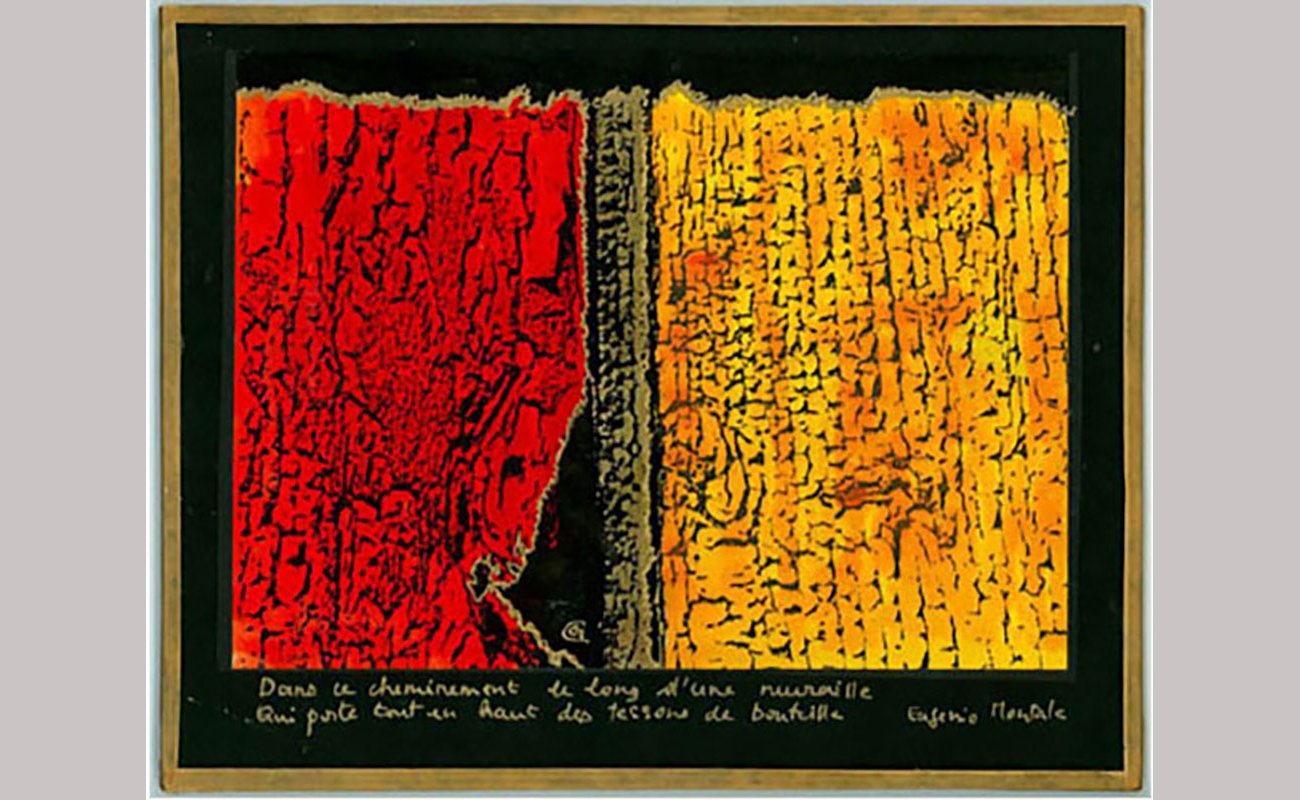 Dans ce cheminement le long d'une muraille
Qui porte tout en haut des tessons de bouteille Eugenio Montale